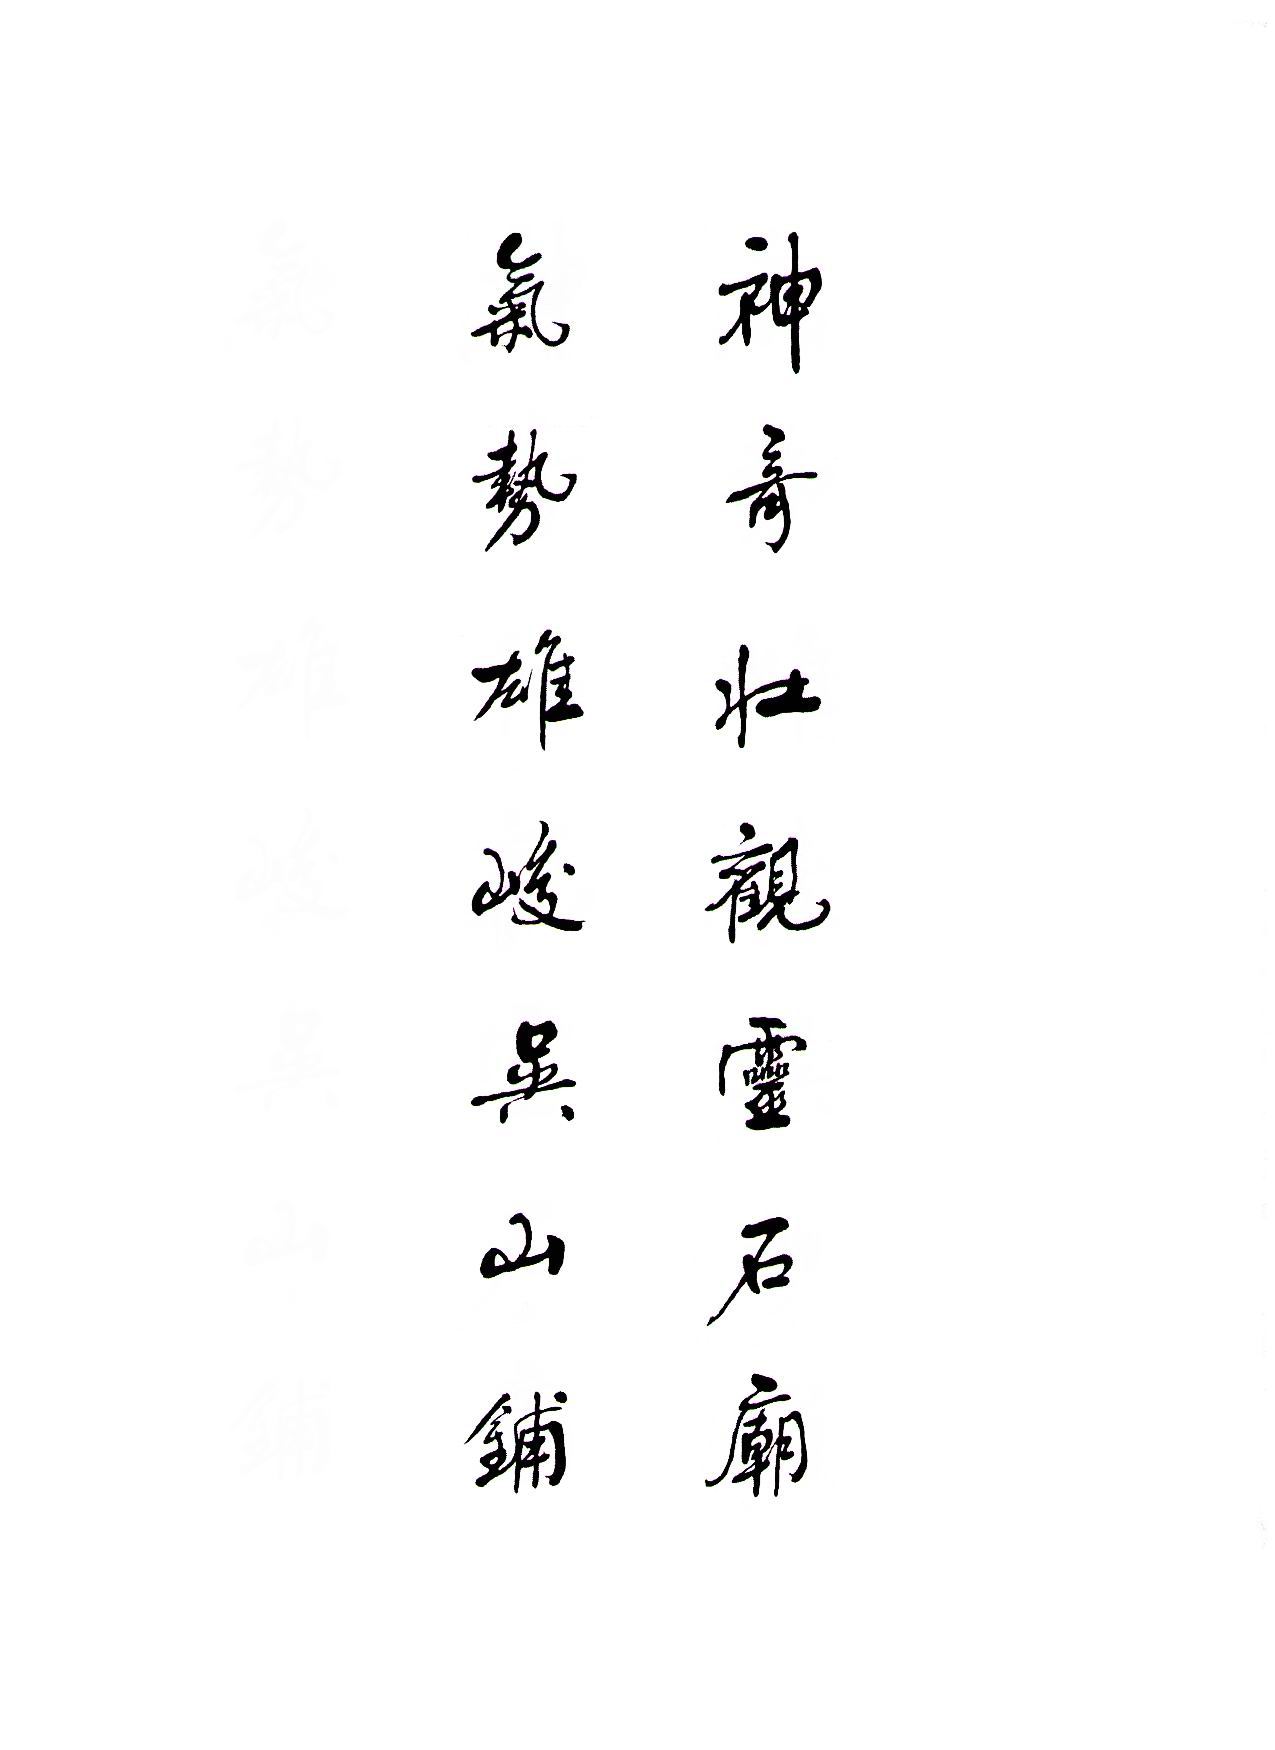 神奇壯觀靈石廟
氣勢雄峻吳山鋪